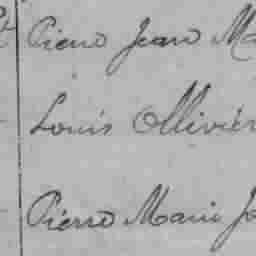 Pierre Jean Ma
Louis Ollivier
Pierre Marie Jo